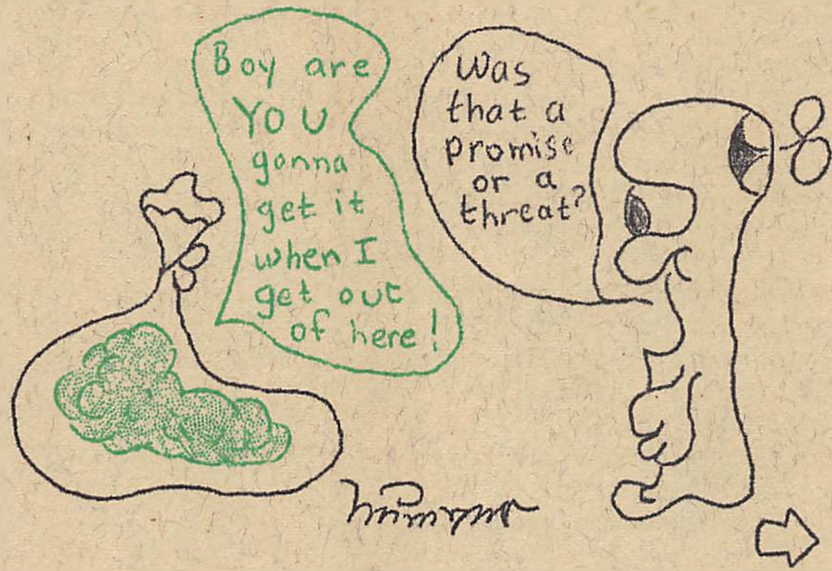 Boy are
YOU
gonna
get it
when I
get out
of here!
Was
that a
promise
or a
threat?